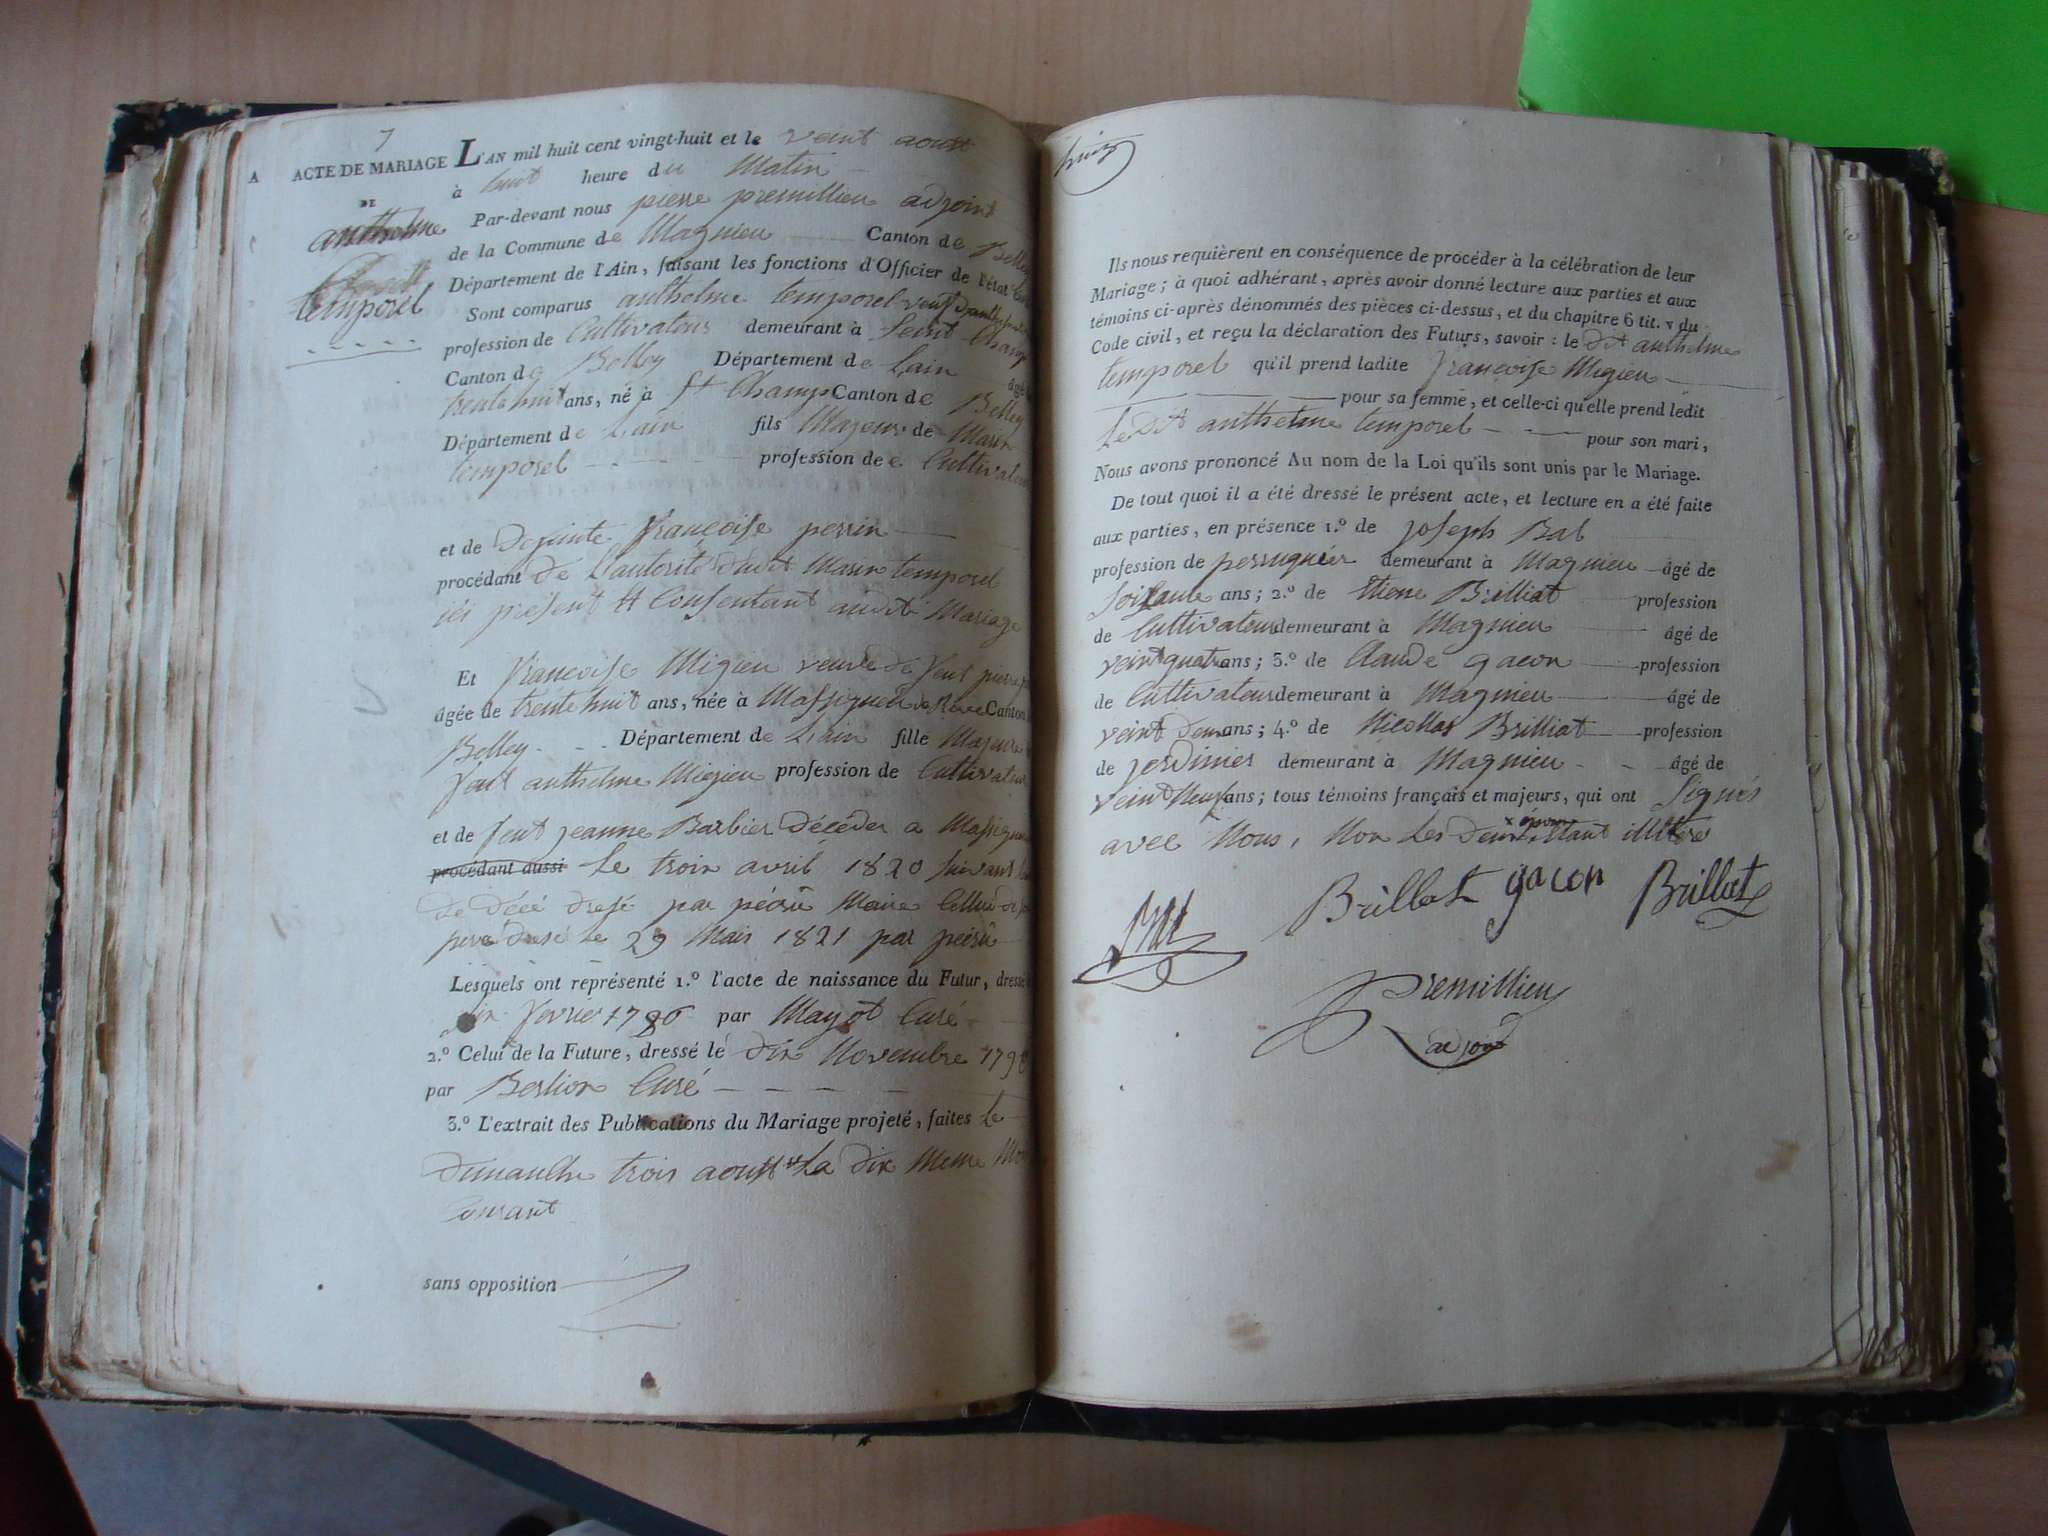 7
A ACTE DE MARIAGE
DE
anthelme
temporel
L'AN mil huit cent vingt-huit et le veint aoust
à huit heure du Matin
Par-devant nous pierre premillieu adjoint
de la Commune de Magnieu Canton de Belley
Département de l'Ain, faisant les fonctions d'Officier de l'état
Sont comparus anthelme temporel veuf
profession de Cultivateur demeurant à Seint Champ
Canton de Belley Département de Lain âgé
trente huit ans, né à St Champ Canton de Belley
Département de Lain fils Majeur de Marin
temporel profession de Cultivateur
et de defeinte françoise perrin
procédant de L'autorité dudit Marin temporel
ici présent et Consentant audit Mariage
Et françoise Migieu veuve de feut pierre
âgée de trente huit ans, née à Massigneu de Rive Canton
Belley Département de Lain fille Majeure
feut anthelme Migieu profession de Cultivateur
et de feut jeanne Barbier décéder a Massigneu
procédant aussi Le trois avril 1820 suivant
de décé dresé par péösü Maire Cellui de
pere dresé Le 29 Mais 1821 par
Lesquels ont représenté 1.º l'acte de naissance du Futur, dressé
dix fevrier par Mayot Curé
2.º Celui de la Future, dressé le dix Novembre
par Berlion Curé
3.º L'extrait des Publications du Mariage projeté, faites Le
dimanche trois aoust et La dix Meme Mois
Courant
sans opposition
huit
Ils nous requièrent en conséquence de procéder à la célébration de leur
Mariage ; à quoi adhérant, après avoir donné lecture aux parties et aux
témoins ci-après dénommés des pièces ci-dessus, et du chapitre 6 tit. v du
Code civil, et reçu la déclaration des Futurs, savoir : le dit anthelme
temporel qu'il prend ladite françoise Migieu
pour sa femme, et celle-ci qu'elle prend ledit
Le Dit anthelme temporel pour son mari,
Nous avons prononcé Au nom de la Loi qu'ils sont unis par le Mariage.
De tout quoi il a été dressé le présent acte, et lecture en a été faite
aux parties, en présence 1.º de joseph Bal
profession de perruquier demeurant à Magnieu âgé de
Soixante ans ; 2.º de Etiene Brilliat profession
de Cultivateur demeurant à Magnieu âgé de
veint quatre ans ; 3.º de Claude gacon profession
de Cultivateur demeurant à Magnieu âgé de
veint deux ans ; 4.º de Nicollas Brilliat profession
de jerdinier demeurant à Magnieu âgé de
veint Neuf ans ; tous témoins français et majeurs, qui ont Signés
avec Nous, Non Les deux x époux Etant illitéré
Brillat gacon Brillat
Premillieu
adjoint